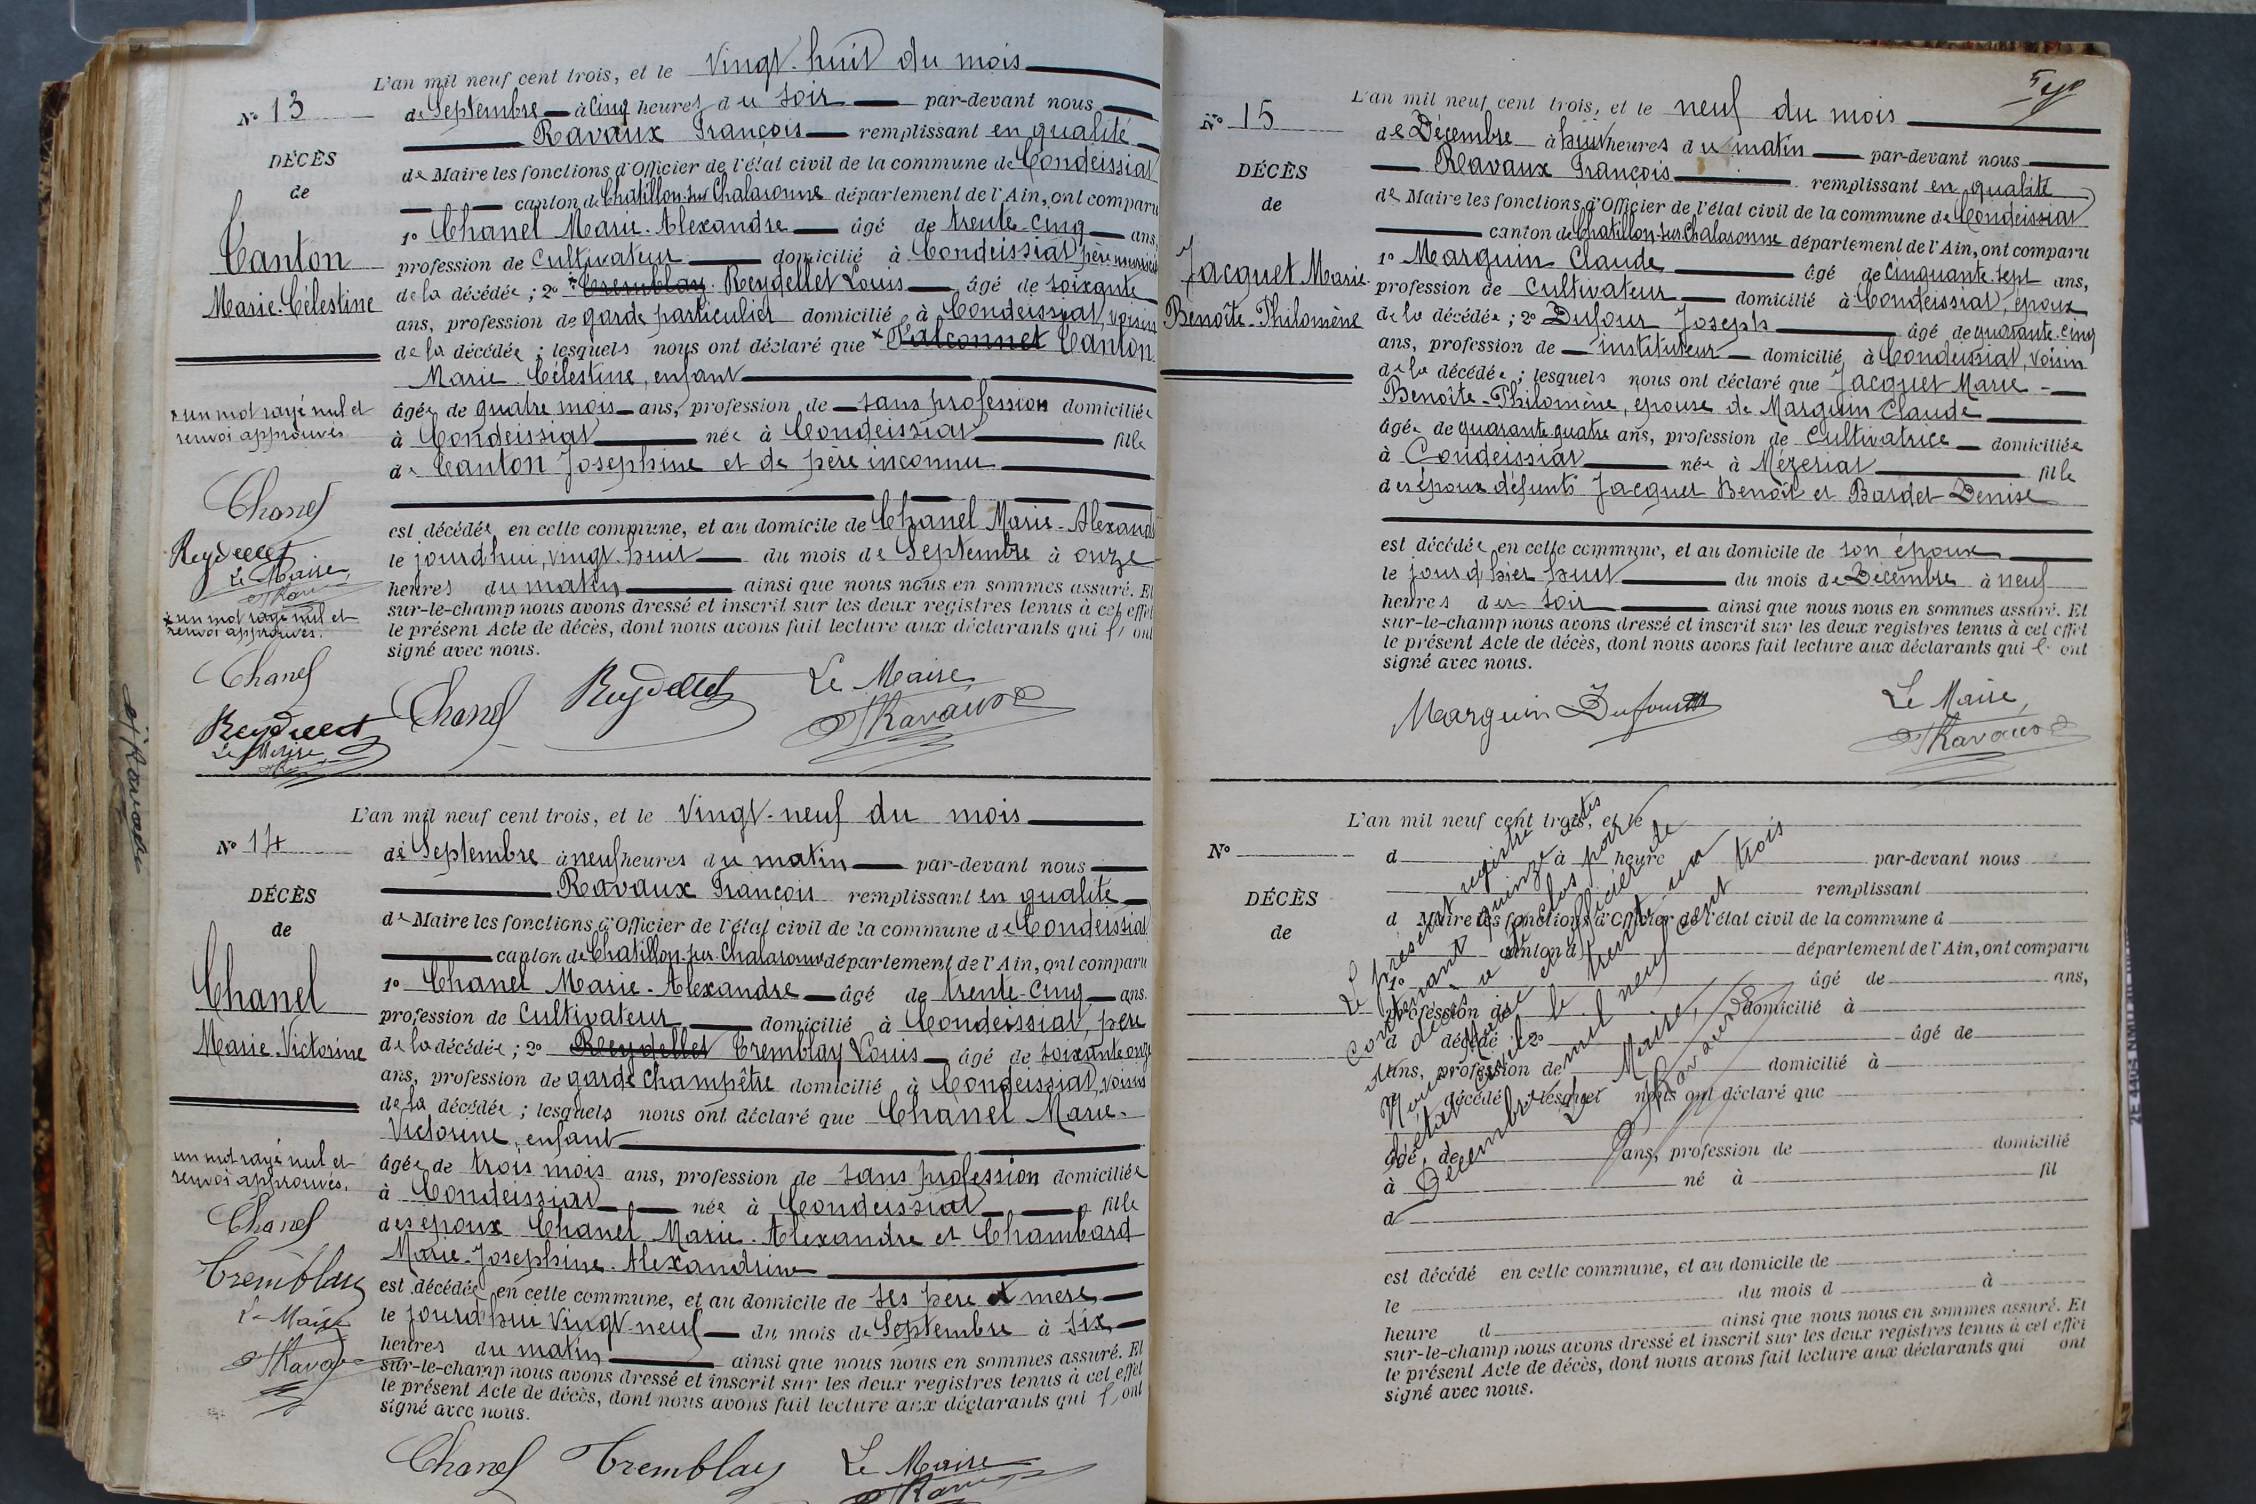 L'an mil neuf cent trois, et le vingt-huit du mois
N° 13
de Septembre à cinq heures du soir par-devant nous
Ravaux François remplissant en qualité
DÉCÈS
de
de Maire les fonctions d'Officier de l'état civil de la commune de Condeissiat
canton de Châtillon-sur-Chalaronne département de l'Ain, ont comparu
Canton
Marie-Célestine
1° Chanel Marie-Alexandre âgé de trente-cinq ans,
profession de cultivateur domicilié à Condeissiat, père nourricier
de la décédée ; 2° * Tremblay Reydellet Louis âgé de soixante
ans, profession de garde particulier domicilié à Condeissiat, voisin
de la décédée ; lesquels nous ont déclaré que * Falconnet Canton
Marie Célestine, enfant
âgée de quatre mois ans, profession de sans profession domiciliée
à Condeissiat née à Condeissiat fille
de Canton Josephine et de père inconnu
est décédée en cette commune, et au domicile de Chanel Marie-Alexandre
le jourd'hui, vingt-huit du mois de Septembre à onze
heures du matin ainsi que nous nous en sommes assuré. Et
sur-le-champ nous avons dressé et inscrit sur les deux registres tenus à cet effet
le présent Acte de décès, dont nous avons fait lecture aux déclarants qui l'ont
signé avec nous.
x un mot rayé nul et
renvoi approuvés
Chanel
Reydellet
Le Maire,
Ravaux
x un mot rayé nul et
renvoi approuvés.
Chanel
Reydellet
Le Maire
Chanel Reydellet Le Maire
Ravaux
L'an mil neuf cent trois, et le vingt-neuf du mois
N° 14
de Septembre à neuf heures du matin par-devant nous
Ravaux François remplissant en qualité
DÉCÈS
de
de Maire les fonctions d'Officier de l'état civil de la commune de Condeissiat
canton de Châtillon-sur-Chalaronne département de l'Ain, ont comparu
Chanel
Marie-Victorine
1° Chanel Marie-Alexandre âgé de trente-cinq ans.
profession de cultivateur domicilié à Condeissiat, père
de la décédée ; 2° Reydellet Tremblay Louis âgé de soixante onze
ans, profession de garde champêtre domicilié à Condeissiat, voisin
de la décédée ; lesquels nous ont déclaré que Chanel Marie-
Victorine, enfant
âgée de trois mois ans, profession de sans profession domiciliée
à Condeissiat née à Condeissiat fille
des époux Chanel Marie-Alexandre et Chambard
Marie-Josephine-Alexandrine
est décédée en cette commune, et au domicile de ses père et mère
le jourd'hui vingt-neuf du mois de Septembre à six
heures du matin ainsi que nous nous en sommes assuré. Et
sur-le-champ nous avons dressé et inscrit sur les deux registres tenus à cet effet
le présent Acte de décès, dont nous avons fait lecture aux déclarants qui l'ont
signé avec nous.
un mot rayé nul et
renvoi approuvés.
Chanel
Tremblay
Le Maire
Ravaux
Chanel Tremblay Le Maire
Ravaux
L'an mil neuf cent trois, et le neuf du mois
N° 15
de Décembre à huit heures du matin par-devant nous
Ravaux François remplissant en qualité
DÉCÈS
de
de Maire les fonctions d'Officier de l'état civil de la commune de Condeissiat
canton de Châtillon-sur-Chalaronne département de l'Ain, ont comparu
Jacquet Marie
Benoîte-Philomène
1° Marguin Claude âgé de cinquante-sept ans,
profession de cultivateur domicilié à Condeissiat, époux
de la décédée ; 2° Dufour Joseph âgé de quarante-cinq
ans, profession de instituteur domicilié à Condeissiat, voisin
de la décédée ; lesquels nous ont déclaré que Jacquet Marie-
Benoîte-Philomène, épouse de Marguin Claude
âgée de quarante-quatre ans, profession de cultivatrice domiciliée
à Condeissiat née à Mézériat fille
des époux défunts Jacquet Benoît et Bardet Denise
est décédée en cette commune, et au domicile de son époux
le jour d'hier huit du mois de Décembre à neuf
heures du soir ainsi que nous nous en sommes assuré. Et
sur-le-champ nous avons dressé et inscrit sur les deux registres tenus à cet effet
le présent Acte de décès, dont nous avons fait lecture aux déclarants qui l' ont
signé avec nous.
Marguin Dufour Le Maire,
Ravaux
L'an mil neuf cent trois, et le
N°
d à heure par-devant nous
remplissant
DÉCÈS
de
d Maire les fonctions d'Officier de l'état civil de la commune d
canton d département de l'Ain, ont comparu
1° âgé de ans,
profession de domicilié à
d décédé 2° âgé de
ans, profession de domicilié à
d décédé ; lesquel nous ont déclaré que
âgé de ans, profession de domicilié
à né à fil
d
est décédé en cette commune, et au domicile de
le du mois d à
heure d ainsi que nous nous en sommes assuré. Et
sur-le-champ nous avons dressé et inscrit sur les deux registres tenus à cet effet
le présent Acte de décès, dont nous avons fait lecture aux déclarants qui ont
signé avec nous.
Le présent registre
contenant quinze actes
de décès a été clos par
Nous Maire et officier de
l'état civil le trente un
Décembre mil neuf cent trois
Le Maire,
Ravaux